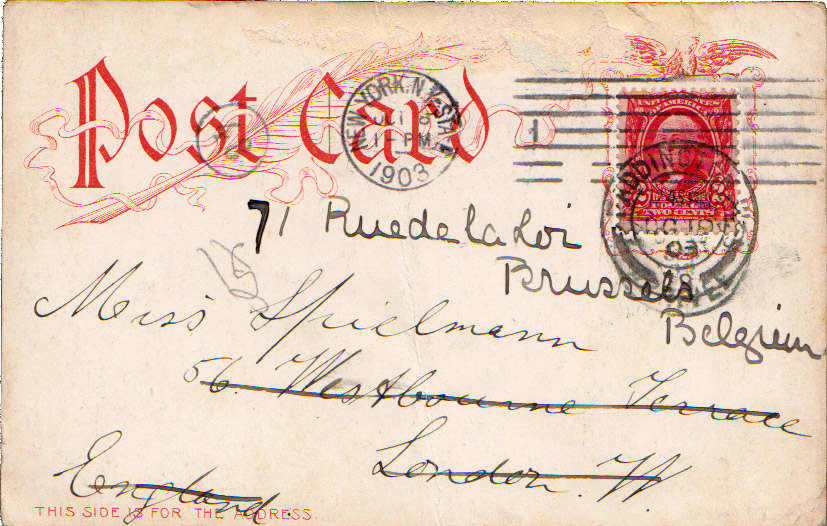 Post Card
NEW YORK, N.Y. STA.
1-PM
1903
1
PADDINGTON
OC 18
03
TWO CENTS
71 Rue de la Loi
Brussels
Belgium
Miss Spielmann
56. Westbourne Terrace
London. W
England.
THIS SIDE IS FOR THE ADDRESS.